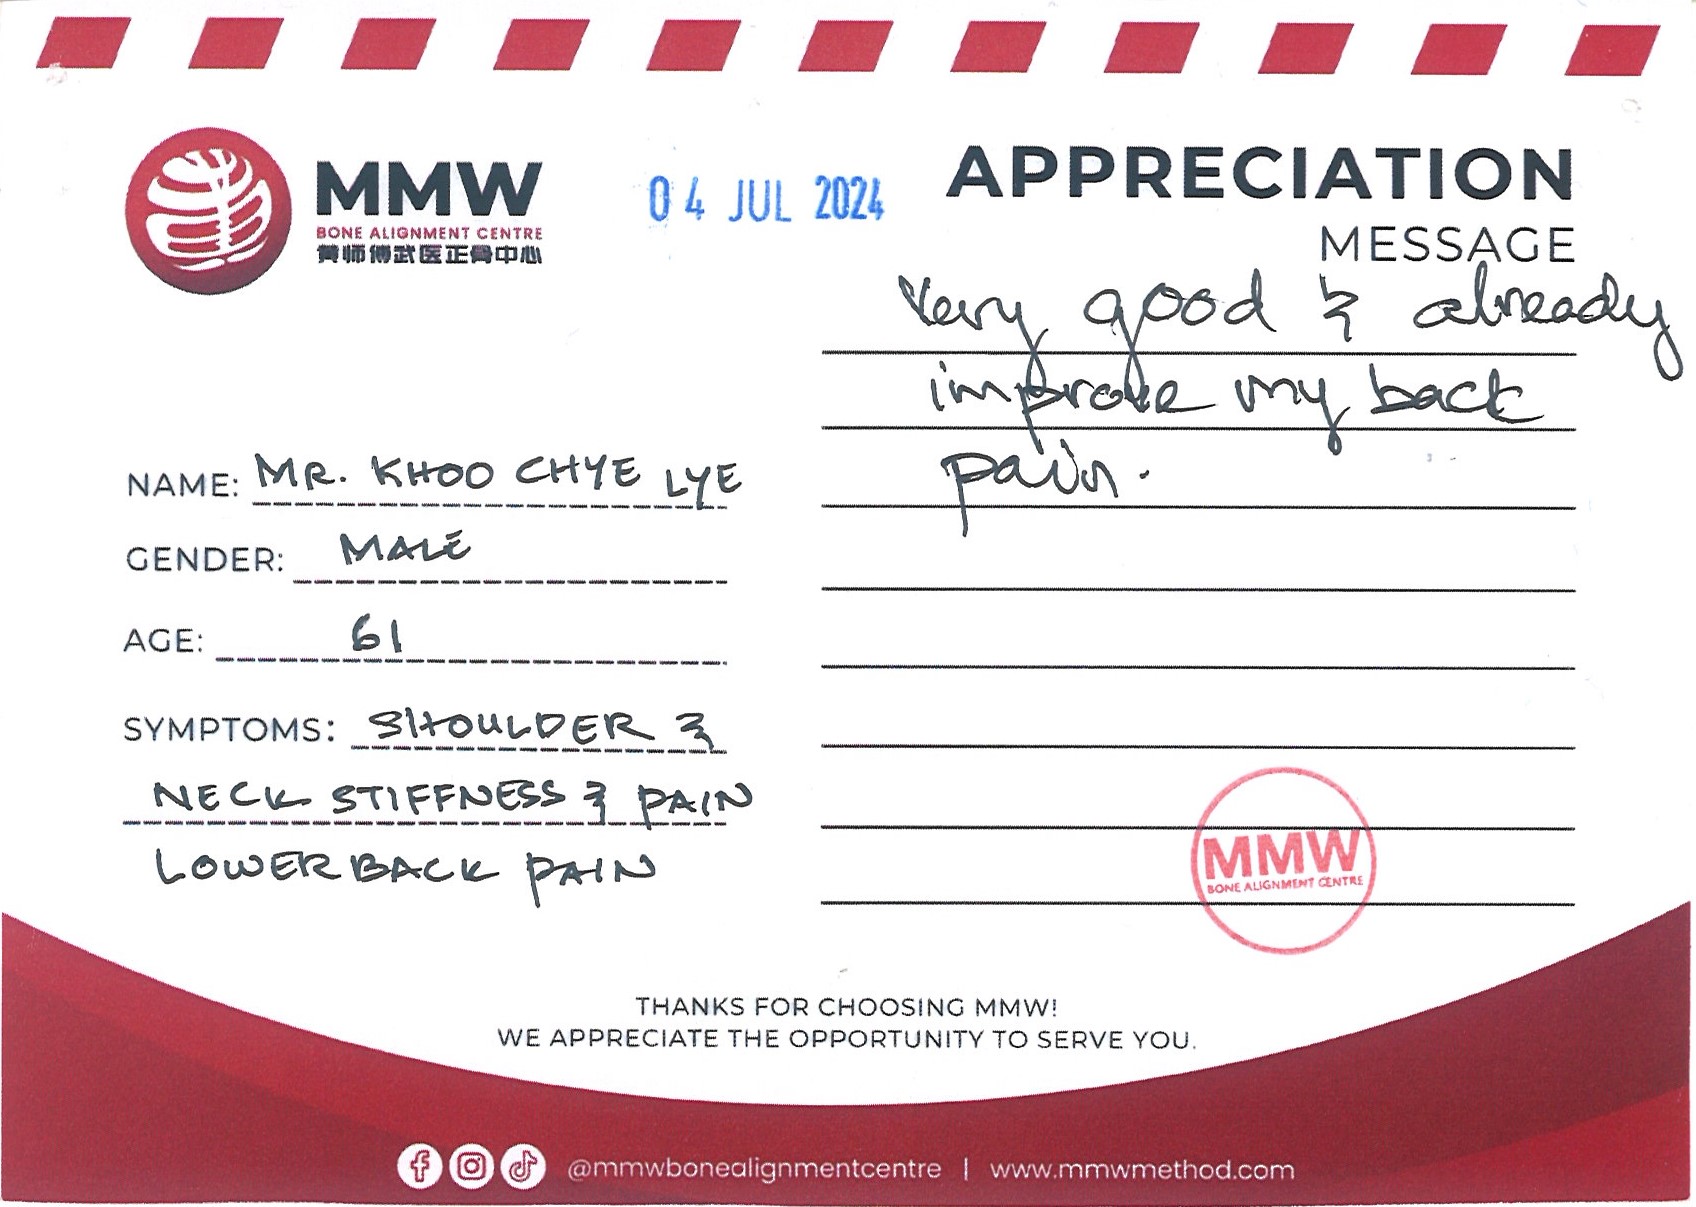 MMW
BONE ALIGNMENT CENTRE
黄师傅武医正骨中心
04 JUL 2024
APPRECIATION
MESSAGE
Very good & already
improve my back
pain.
NAME: MR. KHOO CHYE LYE
GENDER: MALE
AGE: 61
SYMPTOMS: SHOULDER &
NECK STIFFNESS & PAIN
LOWER BACK PAIN
MMW
BONE ALIGNMENT CENTRE
THANKS FOR CHOOSING MMW!
WE APPRECIATE THE OPPORTUNITY TO SERVE YOU.
@mmwbonealignmentcentre | www.mmwmethod.com